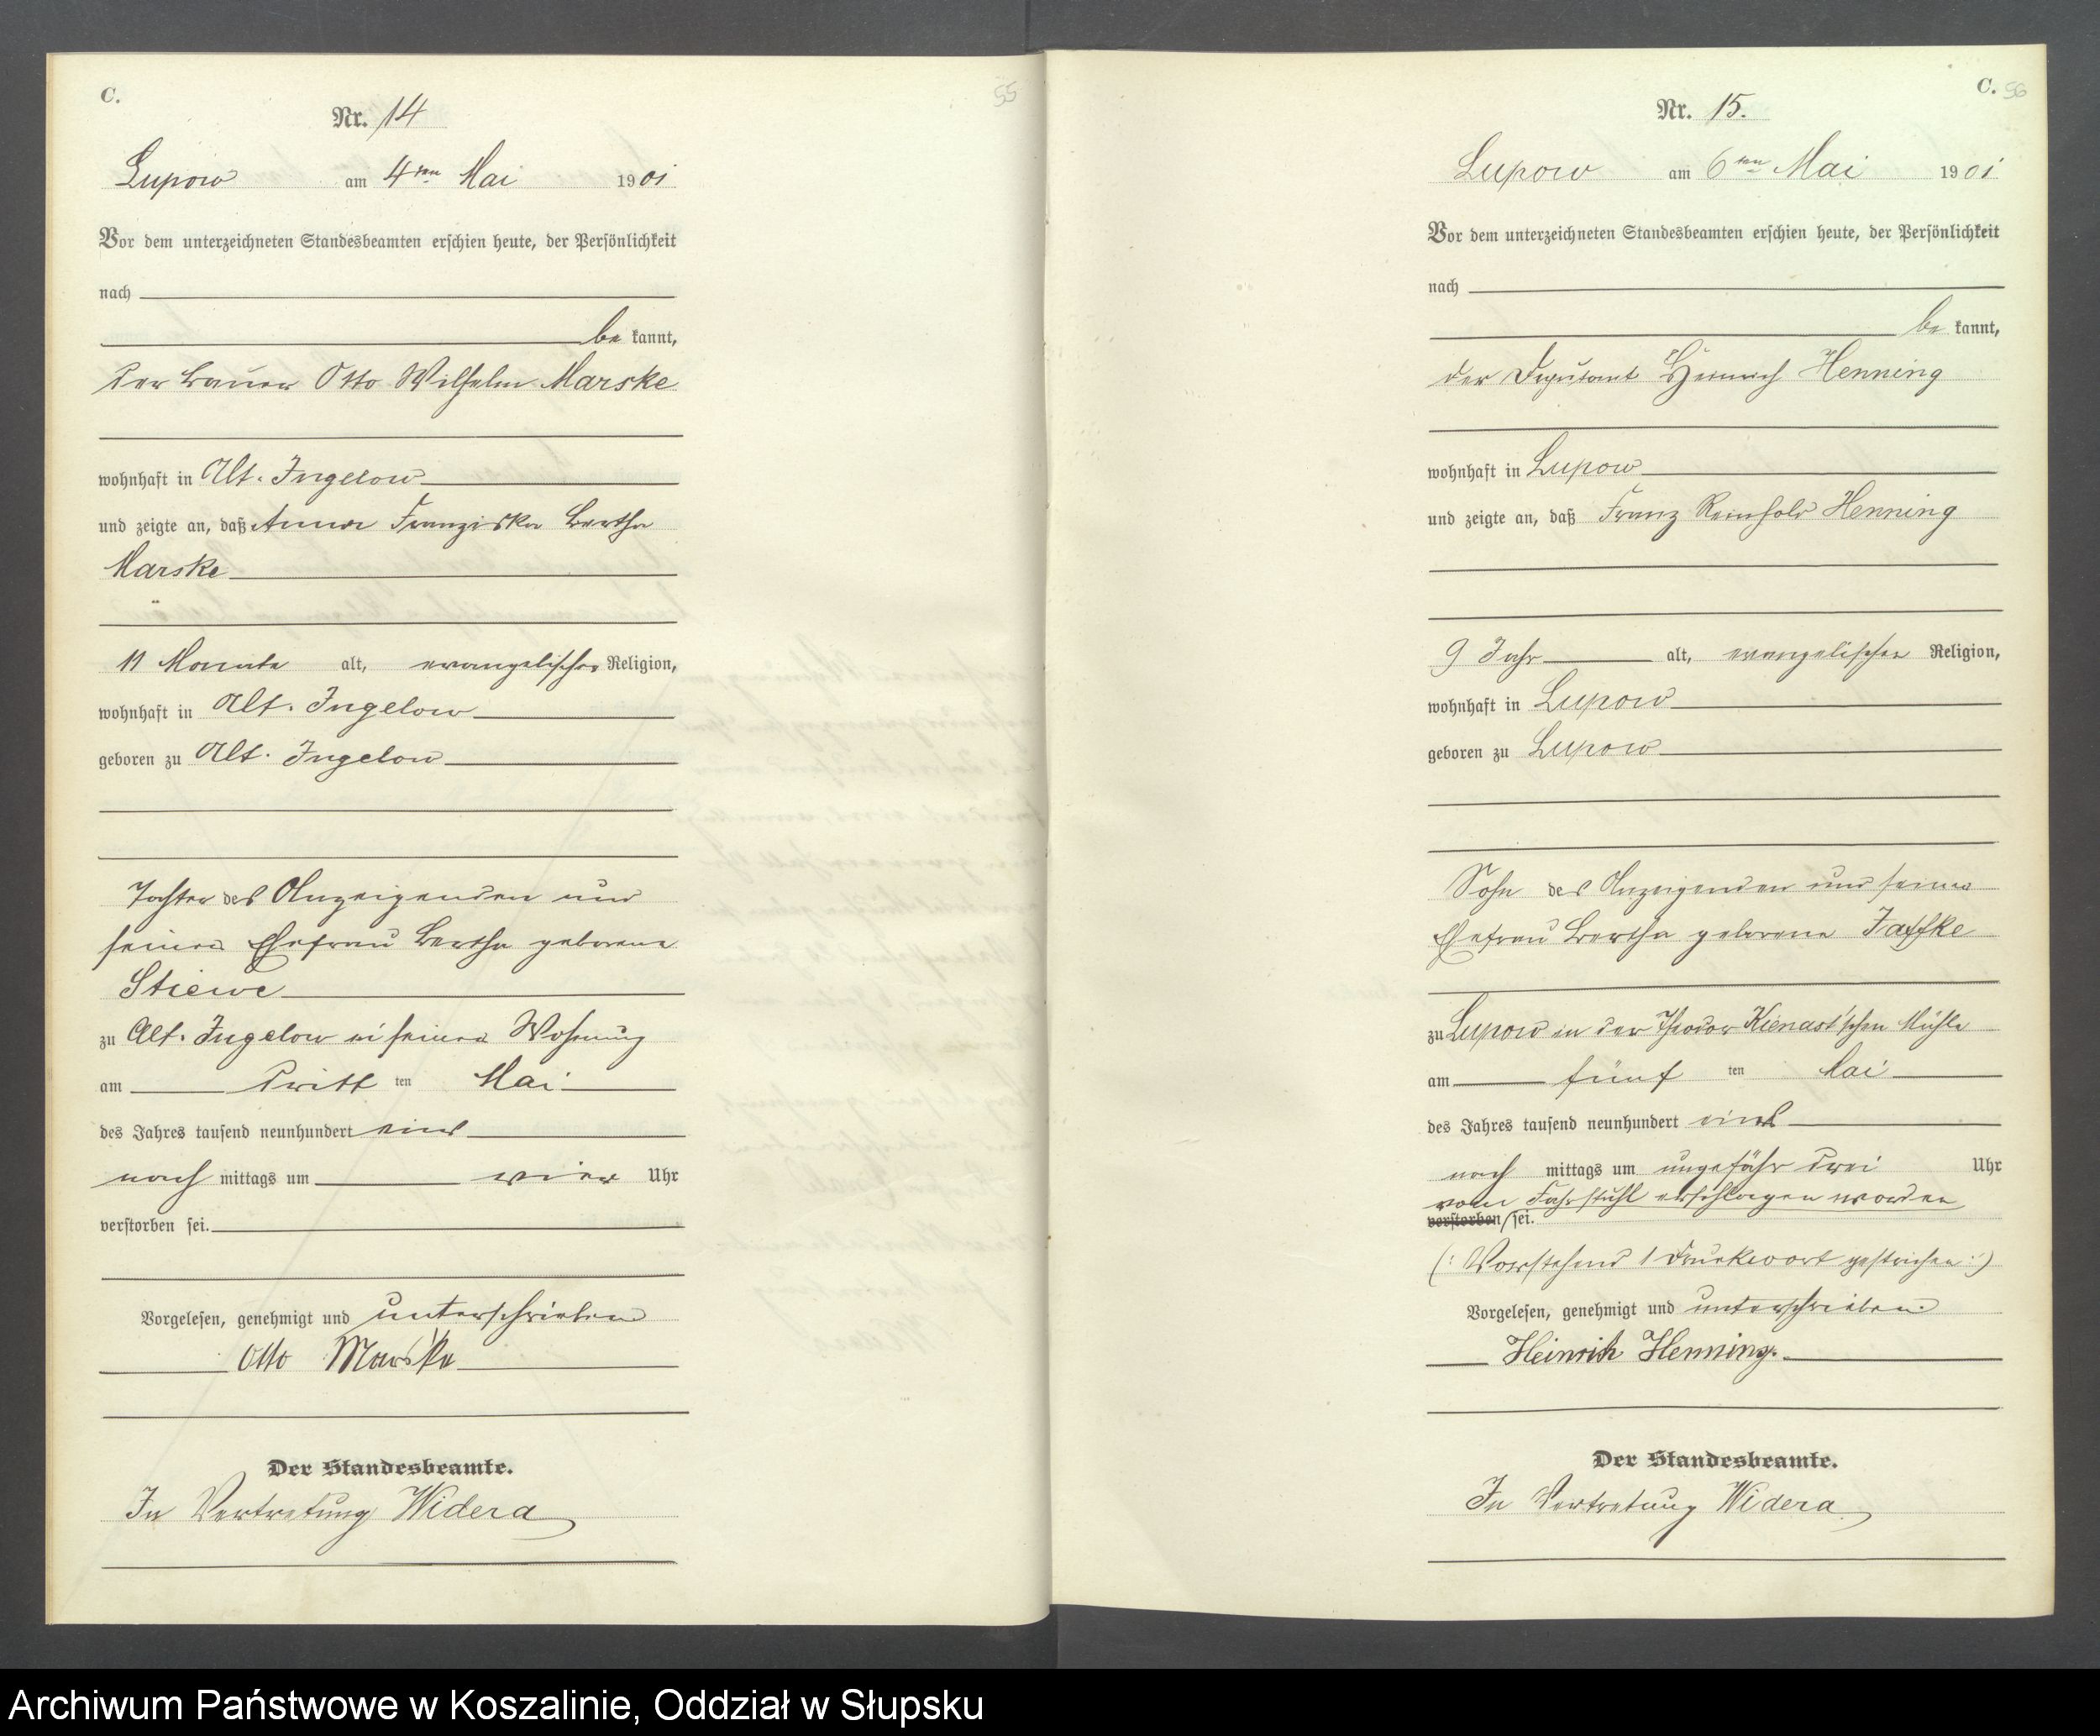 C.
55
Nr. 14
Lupow am 4ten Mai 1901
Vor dem unterzeichneten Standesbeamten erschien heute, der Persönlichkeit
nach
be kannt,
der Bauer Otto Wilhelm Marske
wohnhaft in Alt. Jugelow
und zeigte an, daß Anna Franziska Bertha
Marske
11 Monate alt, evangelischer Religion,
wohnhaft in Alt. Jugelow
geboren zu Alt. Jugelow
Tochter des Anzeigenden und
seiner Ehefrau Bertha geborene
Stiewe
zu Alt. Jugelow in seiner Wohnung
am dritt ten Mai
des Jahres tausend neunhundert eins
nach mittags um vier Uhr
verstorben sei.
Vorgelesen, genehmigt und unterschrieben
Otto Marske
Der Standesbeamte.
In Vertretung Widera
C. 56
Nr. 15.
Lupow am 6ten Mai 1901
Vor dem unterzeichneten Standesbeamten erschien heute, der Persönlichkeit
nach
be kannt,
der Deputant Heinrich Henning
wohnhaft in Lupow
und zeigte an, daß Franz Reinhold Henning
9 Jahr alt, evangelischer Religion,
wohnhaft in Lupow
geboren zu Lupow
Sohn des Anzeigenden und seiner
Ehefrau Bertha geborene
zu Lupow in der Theodor Kienast'schen Mühle
am fünf ten Mai
des Jahres tausend neunhundert eins
nach mittags um ungefähr drei Uhr
vom Fahrstuhl erschlagen worden
verstorben sei.
(: Vorstehend 1 Druckwort gestrichen :)
Vorgelesen, genehmigt und unterschrieben
Heinrich Henning.
Der Standesbeamte.
In Vertretung Widera
Archiwum Państwowe w Koszalinie, Oddział w Słupsku